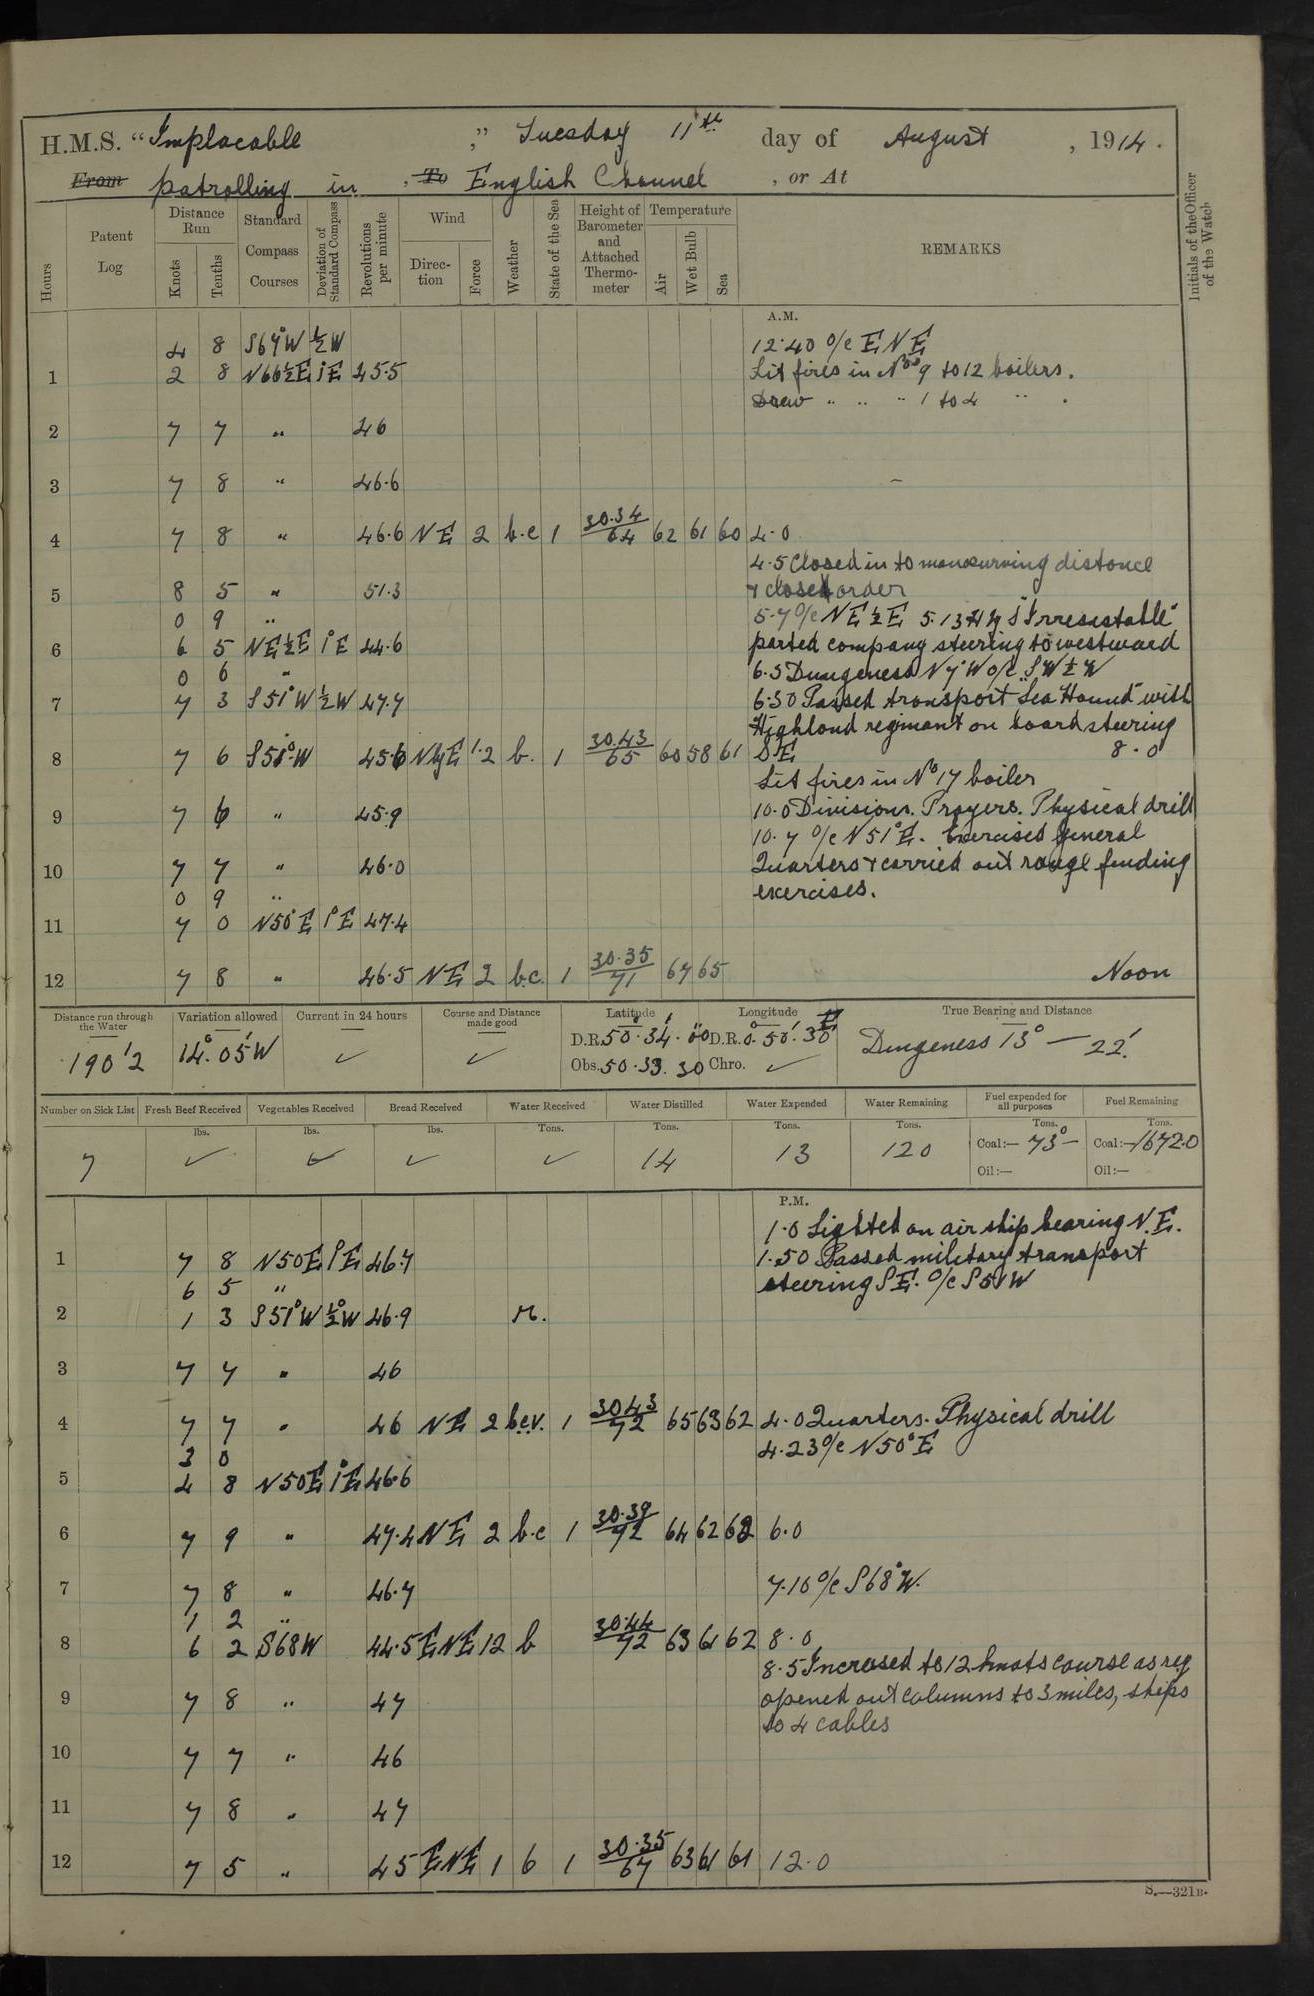 H.M.S. "Implacable," Tuesday 11th day of August, 1914.
From patrolling in, To English Channel, or At
Hours
Patent Log
Distance Run
Knots
Tenths
Standard Compass Courses
Deviation of Standard Compass
Revolutions per minute
Wind
Direction
Force
Weather
State of the Sea
Height of Barometer and Attached Thermometer
Temperature
Air
Wet Bulb
Sea
REMARKS
Initials of the Officer of the Watch
A.M.
4 8 S67°W ½W 12.40 o/c ENE
1 2 8 N66½E 1°E 45.5 Lit fires in Nos 9 to 12 boilers.
Drew " " " 1 to 4 " .
2 7 7 " 46
3 7 8 " 46.6
4 7 8 " 46.6 NE 2 b.c 1 30.34/64 62 61 60 4.0
4.5 Closed in to manoeuvring distance
5 8 5 " 51.3 & closed order
0 9 " 5.7 o/c NE½E 5.13 "Irresistable"
6 6 5 NE½E 1°E 44.6 parted company steering to westward
0 6 " 6.3 Dungeness N7°W o/c SW½W
7 7 3 S51°W ½W 47.7 6.30 Passed transport "Sea Hound" with
Highland regimant on board steering
8 7 6 S51°W 45.6 NbyE 1.2 b. 1 30.43/65 60 58 61 SE 8.0
Lit fires in No 17 boiler
9 7 6 " 45.9 10.0 Divisions. Prayers. Physical drill
10.7 o/c N51°E. Exercised General
10 7 7 " 46.0 Quarters & carried out range finding
0 9 " exercises.
11 7 0 N50°E 1°E 47.4
12 7 8 " 46.5 NE 2 b.c. 1 30.35/71 67 65 Noon
Distance run through the Water
190'2
Variation allowed
14°.05'W
Current in 24 hours
✓
Course and Distance made good
✓
Latitude
D.R. 50°.34'.00"
Obs. 50.33.30
Longitude
D.R. 0°.50'.30" E
Chro. ✓
True Bearing and Distance
Dungeness 13° — 22'.
Number on Sick List
7
Fresh Beef Received
lbs.
✓
Vegetables Received
lbs.
✓
Bread Received
lbs.
✓
Water Received
Tons.
✓
Water Distilled
Tons.
14
Water Expended
Tons.
13
Water Remaining
Tons.
120
Fuel expended for all purposes
Tons.
Coal:— 73°—
Oil:—
Fuel Remaining
Tons.
Coal:— 1672.0
Oil:—
P.M.
1.0 Sighted an air ship bearing N.E.
1 7 8 N50E 1°E 46.7 1.50 Passed military transport
6 5 " steering SE. o/c S51W
2 1 3 S51°W ½°W 46.9 r.
3 7 7 " 46
4 7 7 " 46 NE 2 b.c.v. 1 30.43/72 65 63 62 4.0 Quarters. Physical drill
3 0 4.23 o/c N50°E
5 4 8 N50E 1°E 46.6
6 7 9 " 47.4 NE 2 b.c 1 30.39/72 64 62 62 6.0
7 7 8 " 46.7 7.10 o/c S68°W.
1 2 "
8 6 2 S68W 44.5 ENE 12 b 30.44/72 63 61 62 8.0
8.5 Increased to 12 knots course as req
9 7 8 " 47 opened out columns to 3 miles, ships
to 4 cables
10 7 7 " 46
11 7 8 " 47
12 7 5 " 45 ENE 1 b 1 30.35/67 63 61 61 12.0
S.—321B.